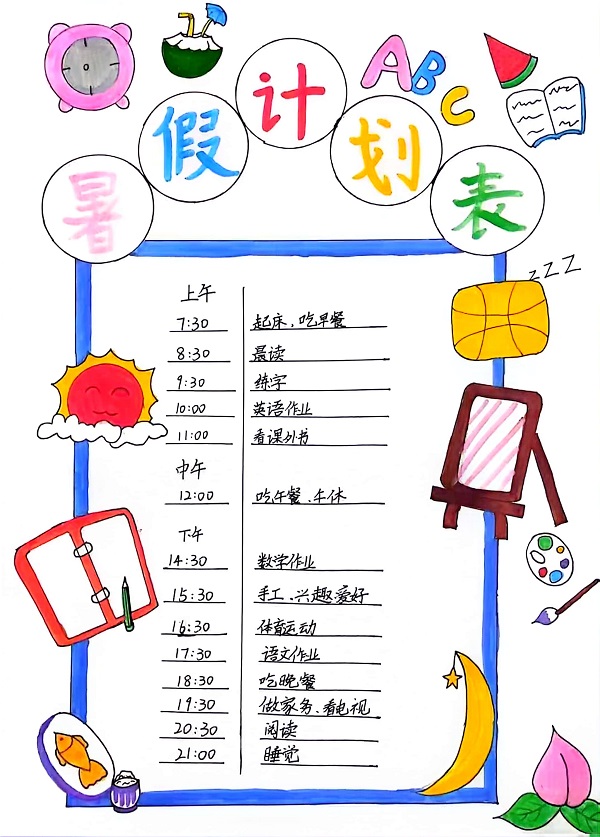 ABC
暑假计划表
zZZ
上午
7:30 起床、吃早餐
8:30 晨读
9:30 练字
10:00 英语作业
11:00 看课外书
中午
12:00 吃午餐、午休
下午
14:30 数学作业
15:30 手工、兴趣爱好
16:30 体育运动
17:30 语文作业
18:30 吃晚餐
19:30 做家务、看电视
20:30 阅读
21:00 睡觉